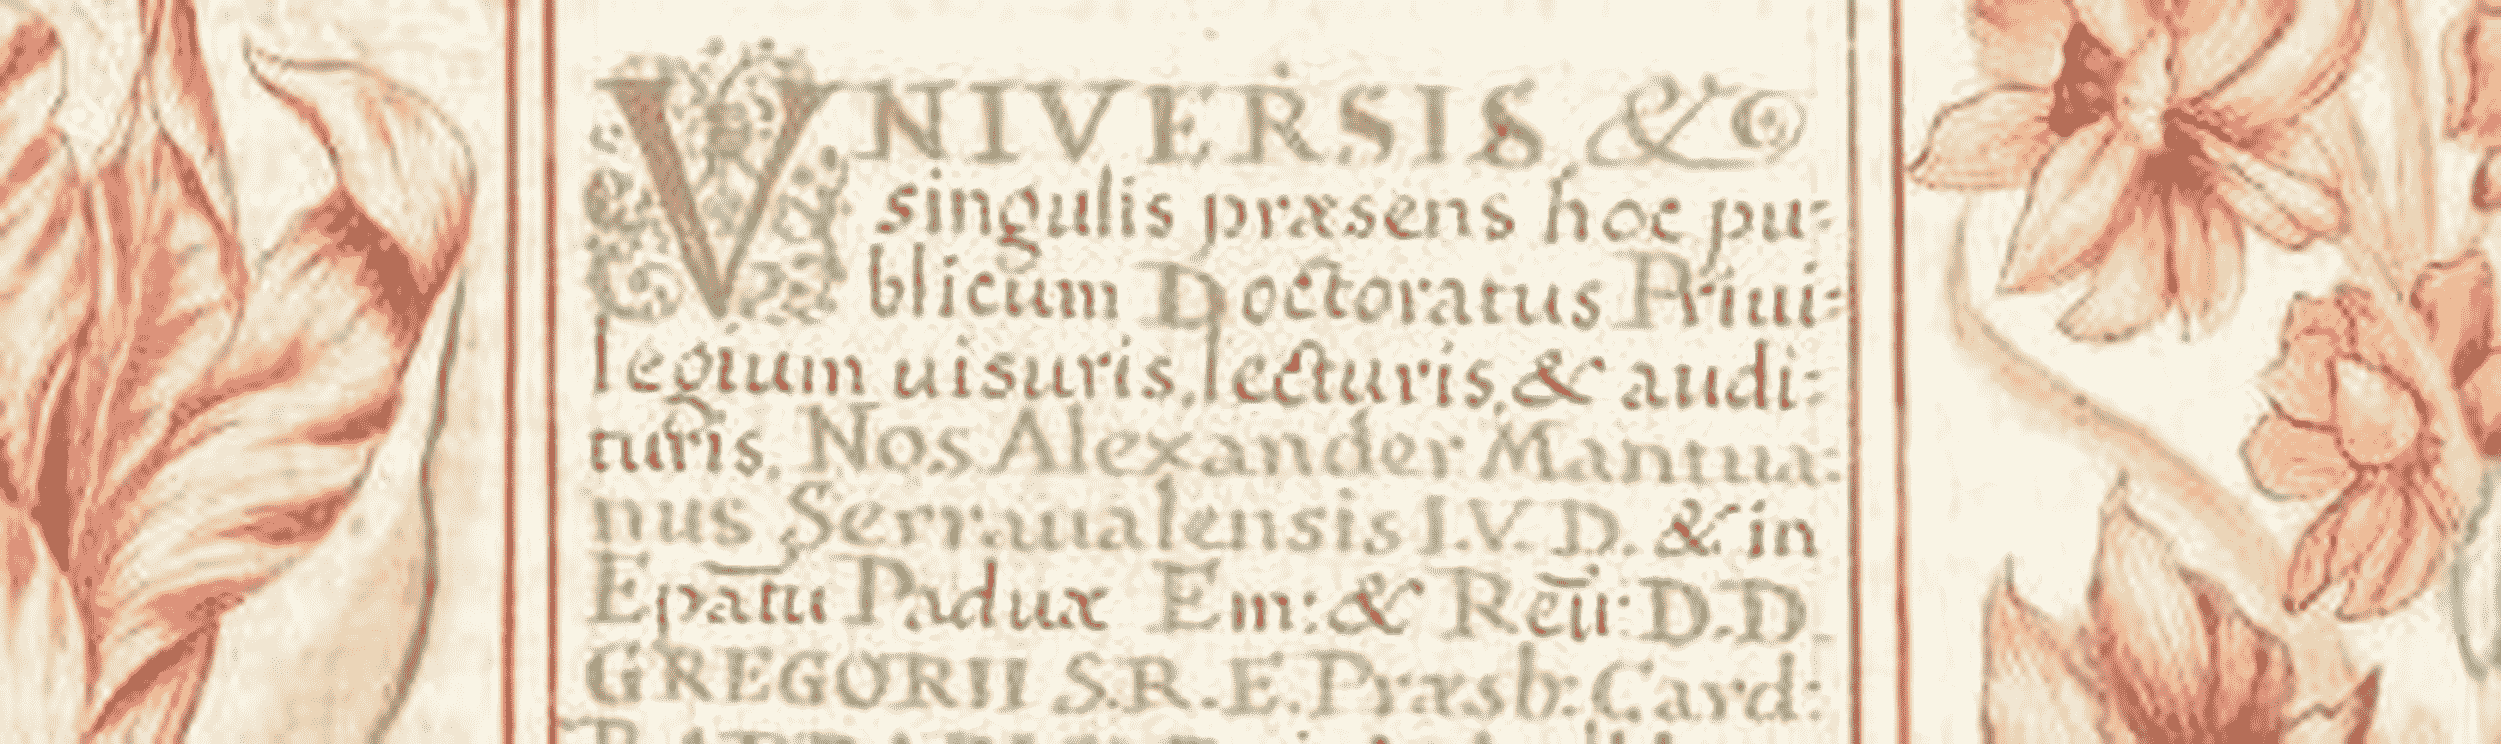 VNIVERSIS &
singulis præsens hoc pu-
blicum Doctoratus Priui-
legium uisuris, lecturis, & audi-
turis. Nos Alexander Mantua-
nus Serraualensis I.V.D. & in
Ep̄atu Paduæ Em: & Rēu: D.D
GREGORII S.R.E. Præsb: Card: